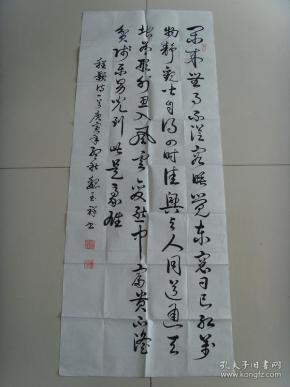 闲来无事不从容睡觉东窗日已红万
物静观皆自得四时佳兴与人同道通天
地有形外思入风云变态中富贵不淫
贫贱乐男儿到此是豪雄
程颢诗一首庚寅年
孔夫子旧书网